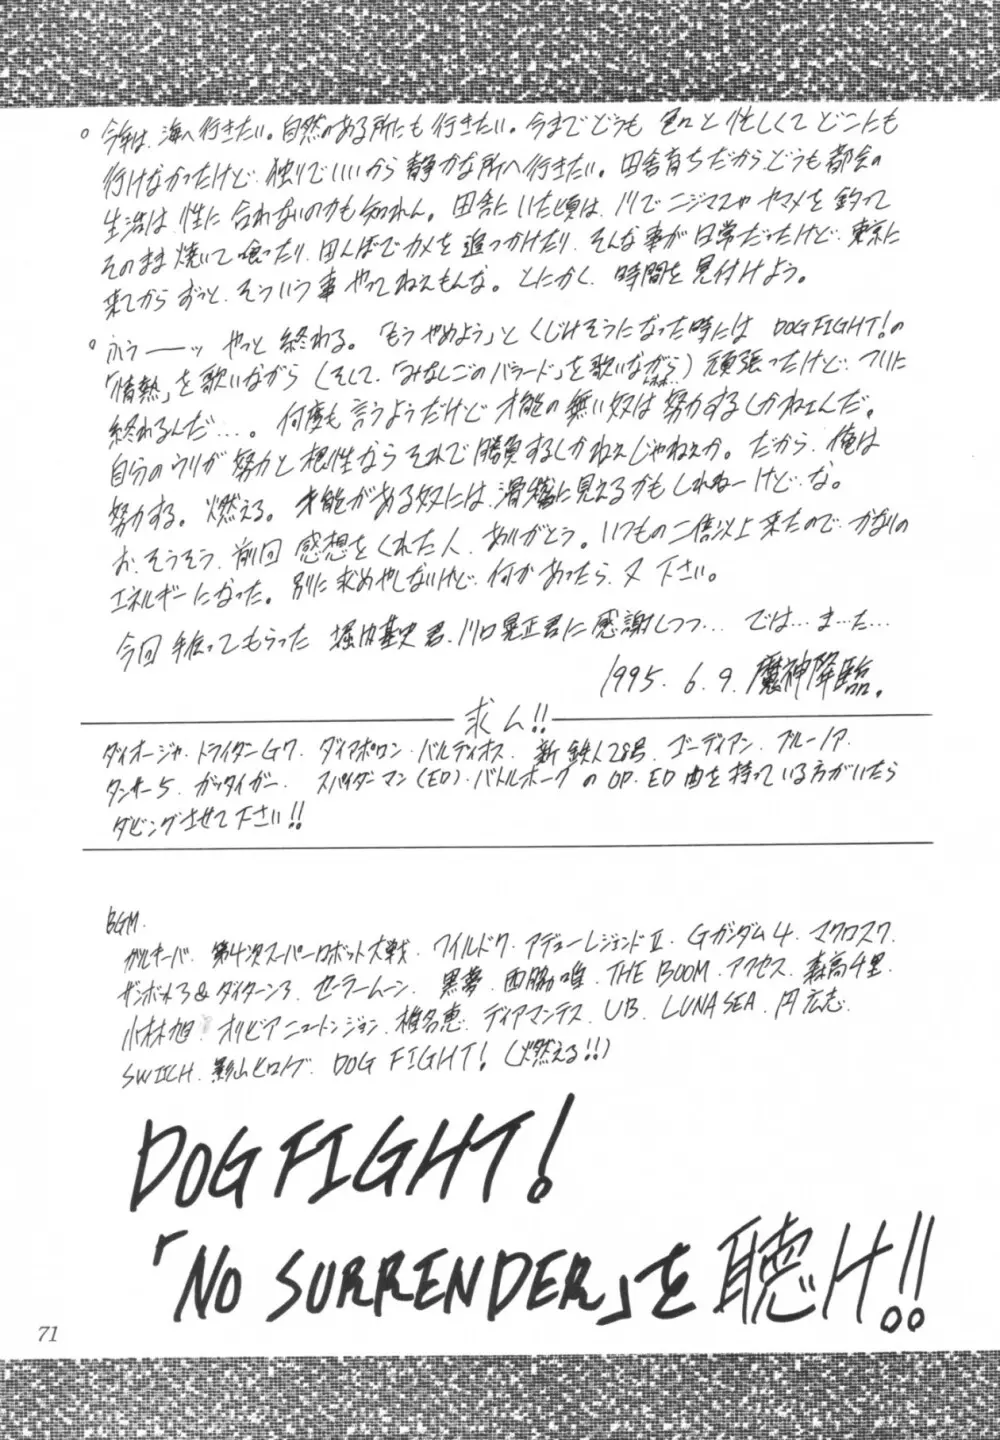 。今年は、海へ行きたい。自然のある所にも行きたい。今までどうも色々と忙しくてどこにも
行けなかったけど、独りでいいから静かな所へ行きたい。田舎育ちだから、どうも都会の
生活は性に合わないのかも知れん。田舎にいた頃は、川でニジマスやヤマメを釣って
そのまま焼いて喰ったり、田んぼでカメを追っかけたり、そんな事が日常だったけど、東京に
来てからずっと、そういう事やってねえもんな。とにかく、時間を見付けよう。
。ふうーーッ やっと終わる。「もうやめよう」とくじけそうになった時には DOG FIGHT!の
「情熱」を歌いながら(そして、「みなしごのバラード」を歌いながら)頑張ったけど、ついに
終わるんだ…。何度も言うようだけど才能の無い奴は努力するしかねェんだ。
自分のウリが努力と根性ならそれで勝負するしかねえじゃねぇか。だから、俺は
努力する。燃える。才能がある奴には、滑稽に見えるかもしれねーけど、な。
お、そうそう、前回感想をくれた人、ありがとう。いつもの二倍以上来たので、かなりの
エネルギーになった。別に求めやしないけど、何かあったら、又下さい。
今回手伝ってもらった堀内基史君、川口晃正君に感謝しつつ…では…ま…た…
1995.6.9.魔神降臨.
求ム!!
ダイオージャ、トライダーG7、ダイアポロン、バルディオス、新鉄人28号、ゴーディアン、ブルーノア、
タンサー5、ガッタイガー、スパイダーマン(ED)・バトルホークのOP・ED曲を持っている方がいたら
ダビングさせて下さい!!
BGM.
ガルキーバ、第4次スーパーロボット大戦、ワイルド7、アデューレジェンドII、Gガンダム4、マクロス7、
ザンボット3&ダイターン3、セーラームーン、黒夢、西脇唯、THE BOOM、アクセス、森高千里、
小林旭、オリビアニュートンジョン、椎名恵、ディアマンテス、UB、LUNA SEA、円広志、
SWITCH、影山ヒロノブ、DOG FIGHT!(燃える!!)
DOG FIGHT!
「NO SURRENDER」を聴け!!
71